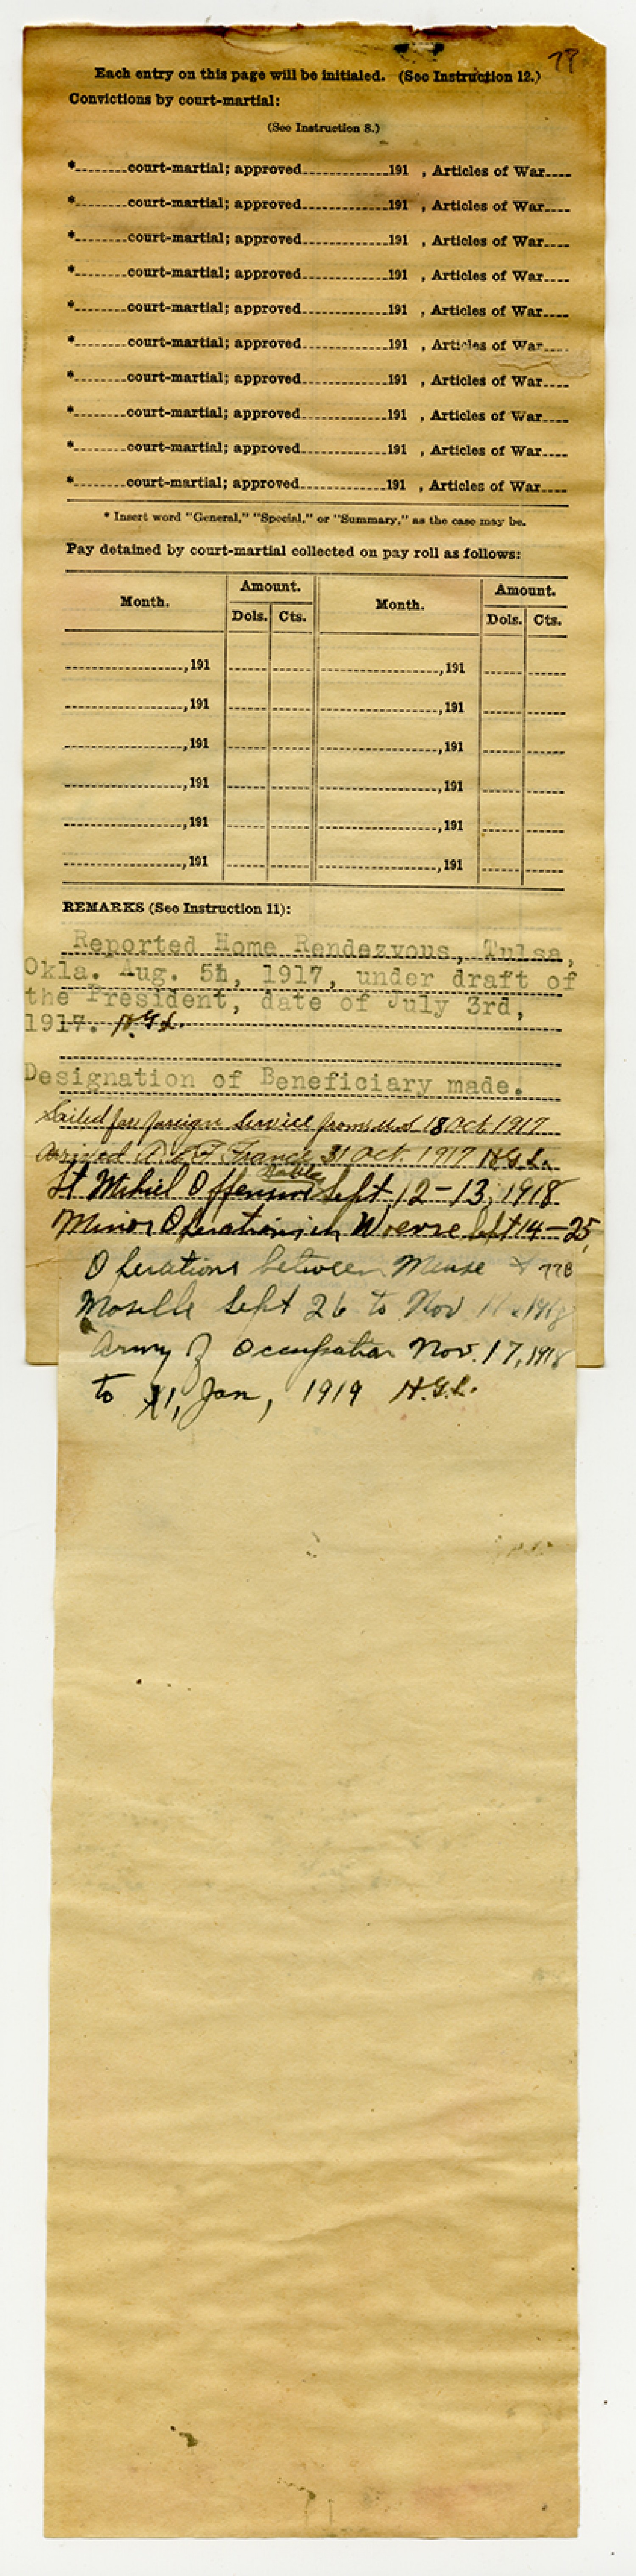 77
Each entry on this page will be initialed. (See Instruction 12.)
Convictions by court-martial:
(See Instruction 8.)
*........court-martial; approved.............191 , Articles of War....
*........court-martial; approved.............191 , Articles of War....
*........court-martial; approved.............191 , Articles of War....
*........court-martial; approved.............191 , Articles of War....
*........court-martial; approved.............191 , Articles of War....
*........court-martial; approved.............191 , Articles of War....
*........court-martial; approved.............191 , Articles of War....
*........court-martial; approved.............191 , Articles of War....
*........court-martial; approved.............191 , Articles of War....
*........court-martial; approved.............191 , Articles of War....
* Insert word "General," "Special," or "Summary," as the case may be.
Pay detained by court-martial collected on pay roll as follows:
Month. Amount. Month. Amount.
Dols. Cts. Dols. Cts.
...................,191 ...................,191
...................,191 ...................,191
...................,191 ...................,191
...................,191 ...................,191
...................,191 ...................,191
...................,191 ...................,191
REMARKS (See Instruction 11):
Reported Home Rendezvous, Tulsa,
Okla. Aug. 5th, 1917, under draft of
the President, date of July 3rd,
1917. H.G.L.
Designation of Beneficiary made.
Sailed for foreign Service from U.S. 18 Oct 1917
Arrived A.E.F. France 31 Oct. 1917 H.G.L.
St Mihiel Offensive Sept. 12-13, 1918
Minor Operations in Woevre Sept 14-25,
Operations between Meuse & 77B
Moselle Sept 26 to Nov 11, 1918
Army of Occupation Nov. 17, 1918
to 1, Jan, 1919 H.G.L.